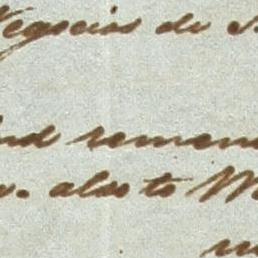 Negocios do
and remem
. also to M